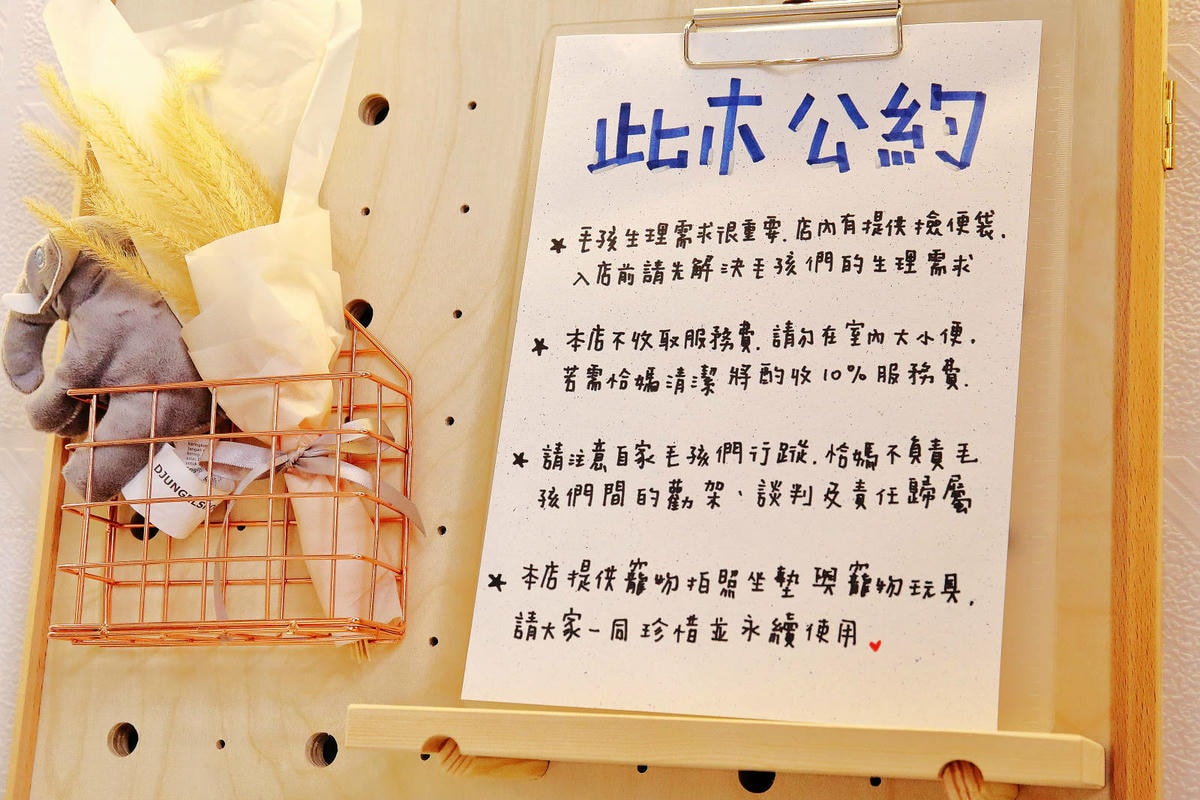 此木公約
★ 毛孩生理需求很重要. 店內有提供撿便袋.
入店前請先解決毛孩們的生理需求
★ 本店不收取服務費. 請勿在室內大小便.
若需恰媽清潔將酌收10%服務費.
★ 請注意自家毛孩們行蹤. 恰媽不負責毛
孩們間的勸架、談判及責任歸屬
★ 本店提供寵物拍照坐墊與寵物玩具,
請大家一同珍惜並永續使用